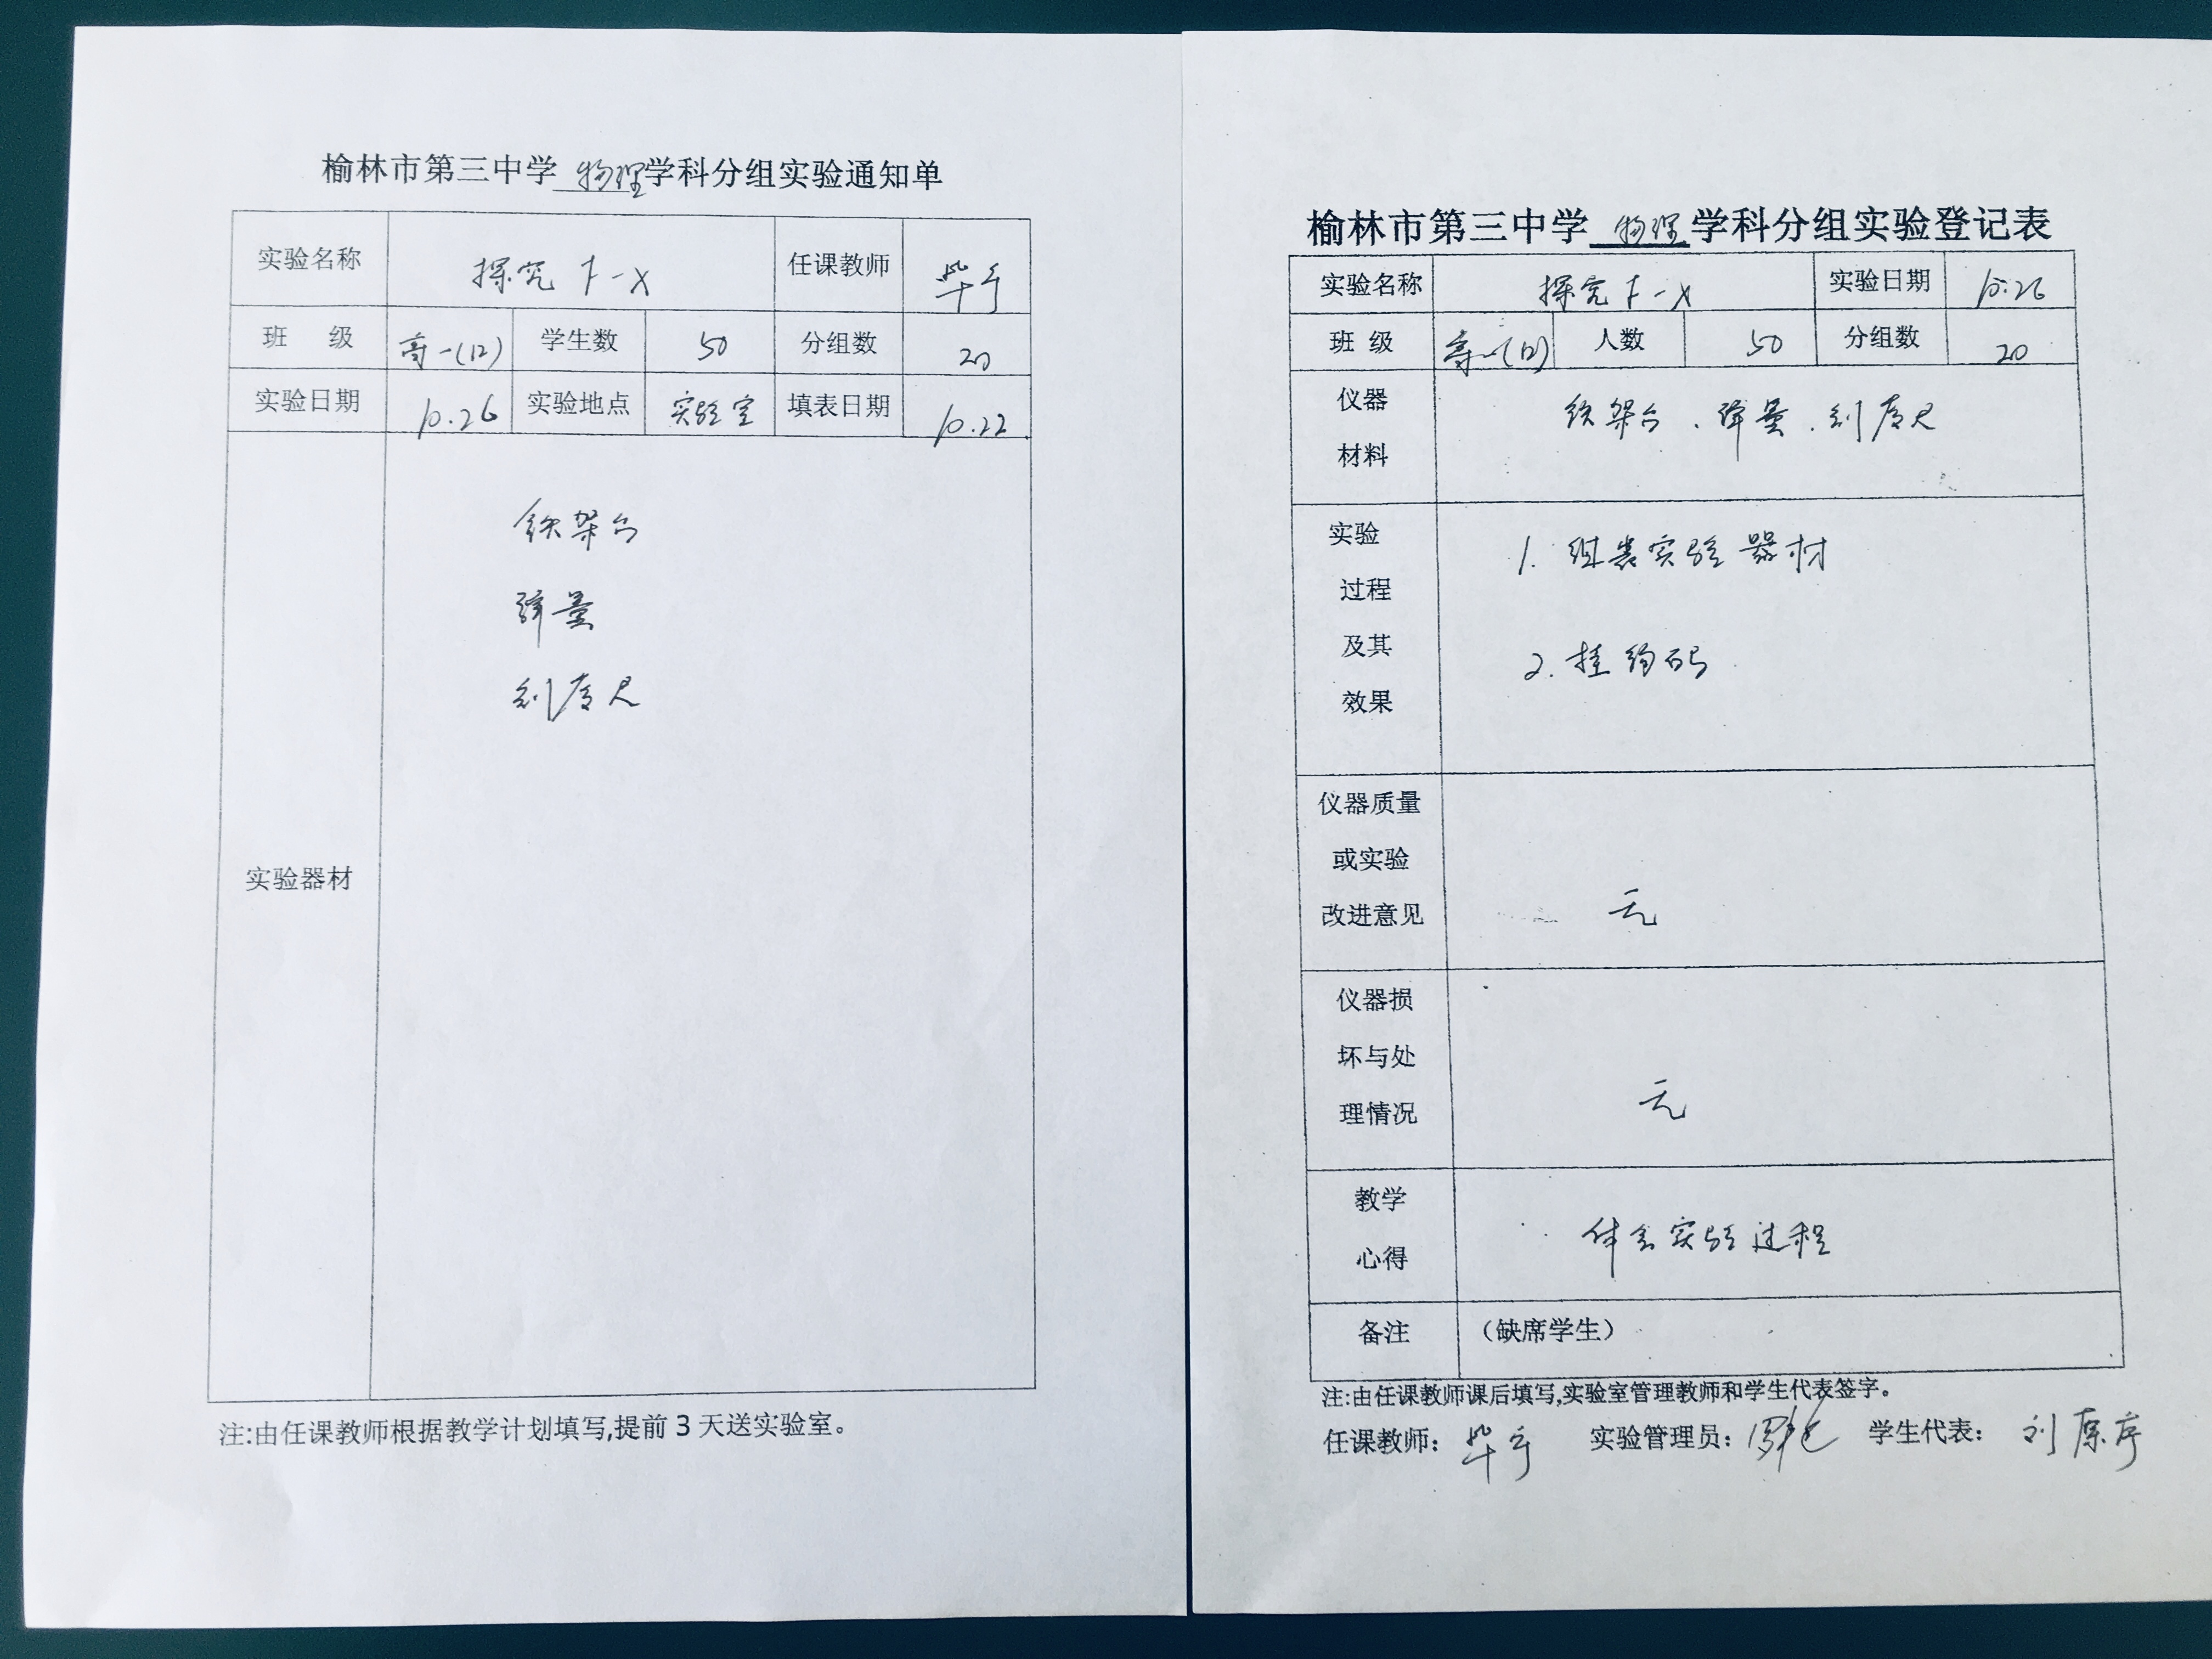 榆林市第三中学 物理 学科分组实验通知单
实验名称 探究 F-x 任课教师 毕宇
班 级 高一(12) 学生数 50 分组数 20
实验日期 10.26 实验地点 实验室 填表日期 10.22
实验器材
铁架台
弹簧
刻度尺
注:由任课教师根据教学计划填写,提前 3 天送实验室。
榆林市第三中学 物理 学科分组实验登记表
实验名称 探究 F-x 实验日期 10.26
班 级 高一(12) 人数 50 分组数 20
仪器
材料
铁架台、弹簧、刻度尺
实验
过程
及其
效果
1. 组装实验器材
2. 挂钩码
仪器质量
或实验
改进意见
无
仪器损
坏与处
理情况
无
教学
心得
体会实验过程
备注 (缺席学生)
注:由任课教师课后填写,实验室管理教师和学生代表签字。
任课教师: 毕宇 实验管理员: 学生代表: 刘